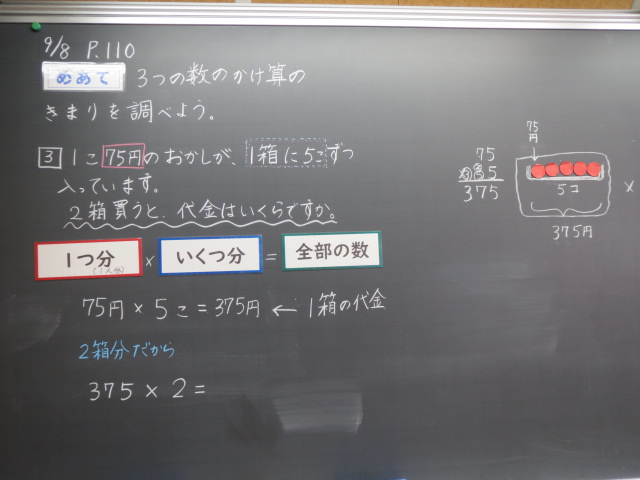 9/8 P.110
めあて 3つの数のかけ算の
きまりを調べよう。
3 1こ75円のおかしが、1箱に5こずつ
入っています。
2箱買うと、代金はいくらですか。
1つ分 × いくつ分 = 全部の数
(1人分)
75円 × 5こ = 375円 ← 1箱の代金
2箱分だから
375 × 2 =
75
375
75円
5コ
375円
×